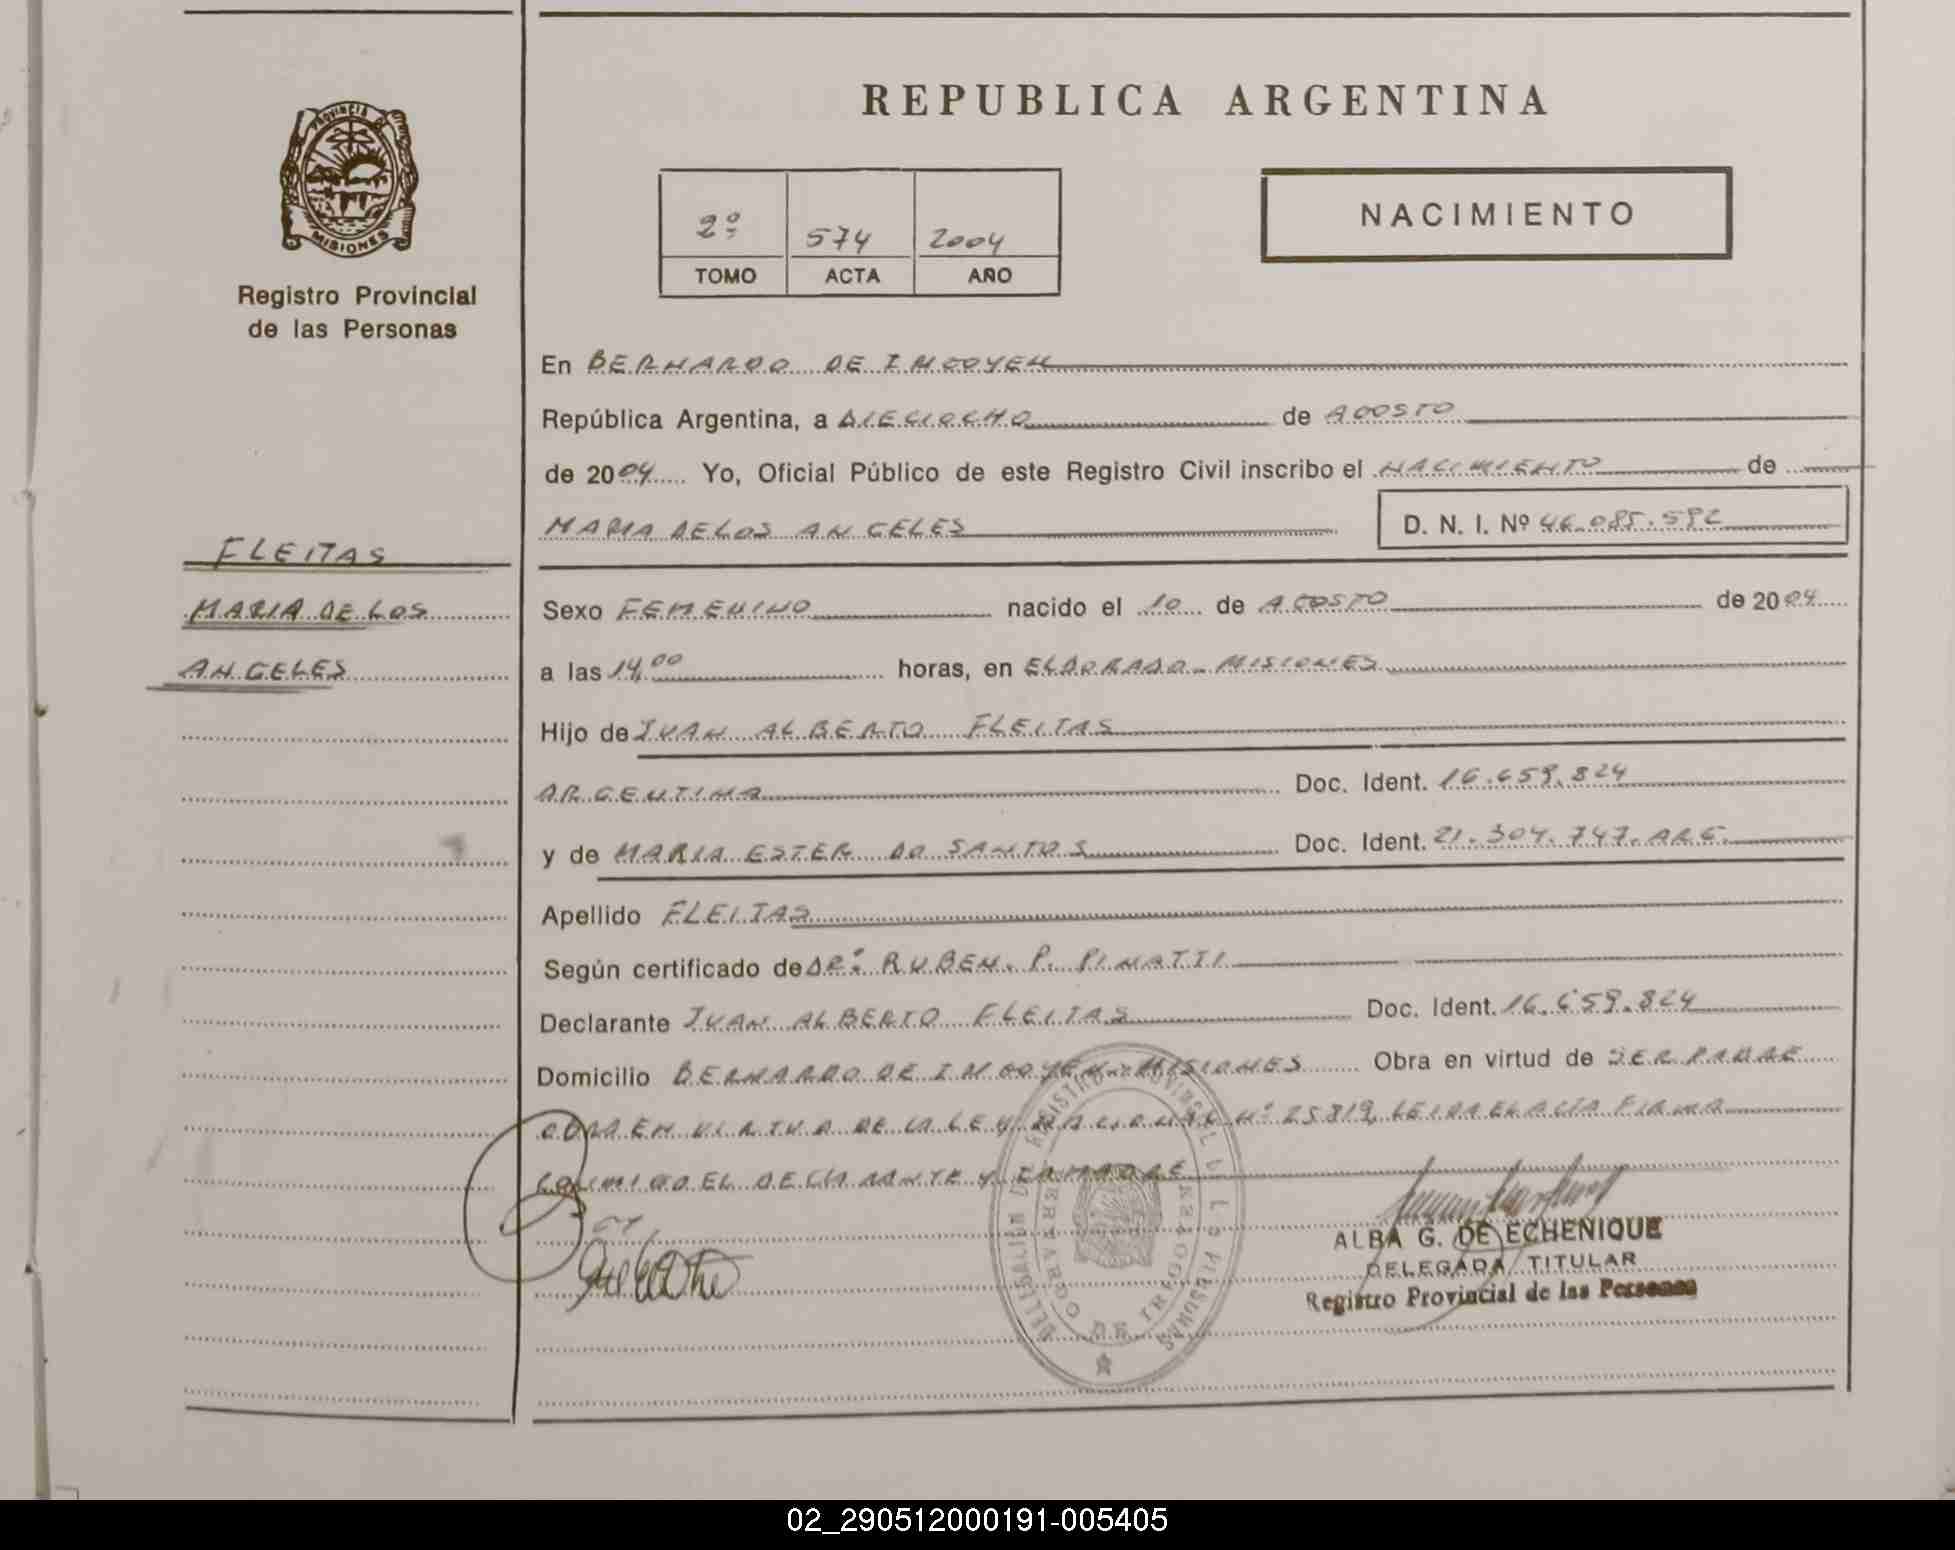 PROVINCIA DE
MISIONES
Registro Provincial
de las Personas
FLEITAS
MARIA DE LOS
ANGELES
REPUBLICA ARGENTINA
2º 574 2004
TOMO ACTA AÑO
NACIMIENTO
En BERNARDO DE IRIGOYEN
República Argentina, a DIECIOCHO de AGOSTO
de 2004 Yo, Oficial Público de este Registro Civil inscribo el NACIMIENTO de
MARIA DE LOS ANGELES D. N. I. Nº 46.085.592
Sexo FEMENINO nacido el 10 de AGOSTO de 2004
a las 14,00 horas, en ELDORADO - MISIONES
Hijo de JUAN ALBERTO FLEITAS
ARGENTINA Doc. Ident. 16.659.824
y de MARIA ESTER DO SANTOS Doc. Ident. 21.304.747. ARG.
Apellido FLEITAS
Según certificado de DRº. RUBEN. P. PINATTI
Declarante JUAN ALBERTO FLEITAS Doc. Ident. 16.659.824
Domicilio BERNARDO DE IRIGOYEN - MISIONES Obra en virtud de SER PADRE
OBRA EN VIRTUD DE LA LEY NACIONAL Nº 25819, LEIDA EL ACTA FIRMA
CONMIGO EL DECLARANTE Y LA MADRE
DELEGACION DEL REGISTRO PROVINCIAL DE LAS PERSONAS
BERNARDO DE IRIGOYEN
ALBA G. DE ECHENIQUE
DELEGADA TITULAR
Registro Provincial de las Personas
02_290512000191-005405